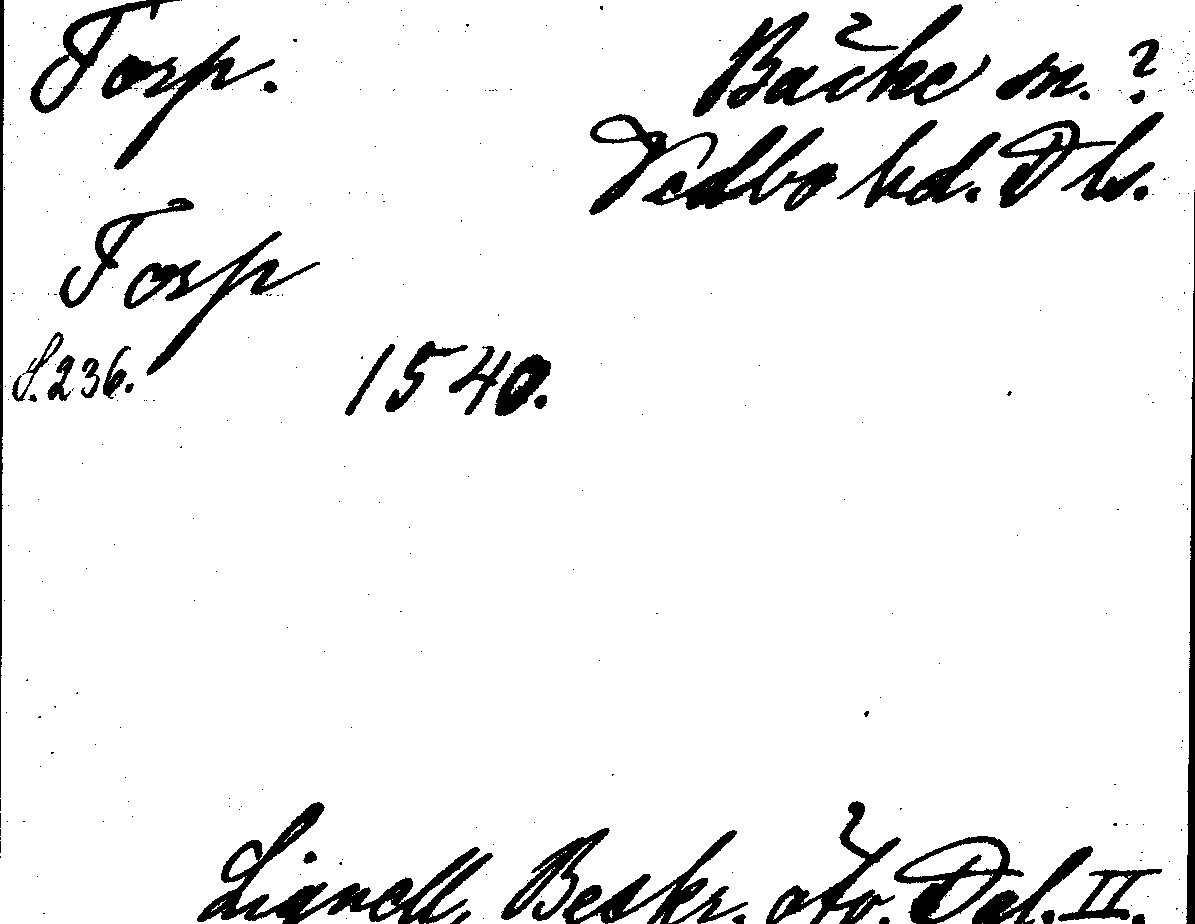 Torp.
Bäcke sn.?
Vedbo hd. Dls.
Torp
S. 236.
1540.
Lignell, Beskr. öfv. Dal. II.